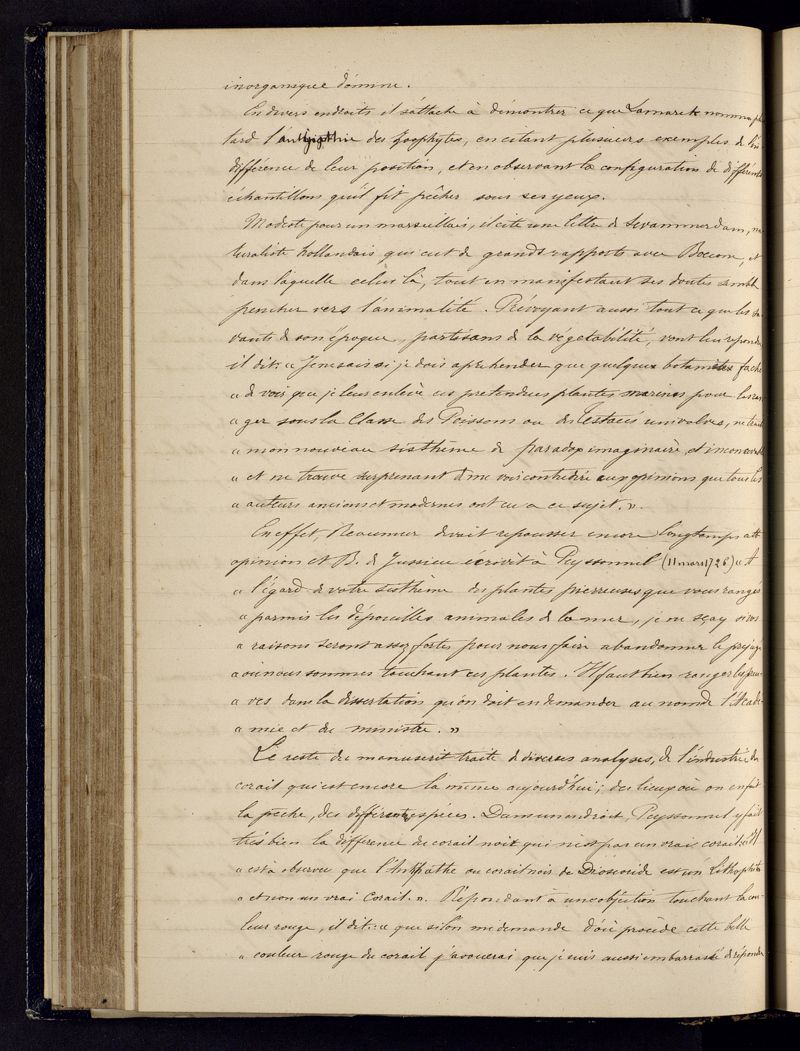 inorganique domine.
En divers endroits il s'attache à démontrer ce que Lamarck nomma plus
tard l' des Zoophytes, en citant plusieurs exemples de l'in
différence de leur position, et en observant la configuration de différents
échantillons qu'il fit pêcher sous ses yeux.
Modeste pour un marseillais, il cite une lettre de Swammerdam, na
turaliste hollandais qui eut de grands rapports avec Boccone, et
dans laquelle celui là, tout en manifestant ses doutes semble
pencher vers l'animalité. Prévoyant aussi tout ce que les sa
vants de son époque, partisans de la végétabilité, vont lui répondre
il dit: « Je ne sais si je dois aprehender que quelques botanistes fachés
« de voir que je leur enlève ces pretendues plantes marines pour les ran
« ger sous la Classe des Poissons ou des Testacés univalves, ne traite
« mon nouveau sisthème de paradox imaginaire, et inconcevable
« et ne trouve surprenant de me voir contredire aux opinions que tous les
« auteurs anciens et modernes ont eu a ce sujet. ».
En effet, Reaumur devait repousser encore longtemps cette
opinion et B. de Jussieu écrivit à Peyssonnel (11 mars 1726) « A
« l'égard de votre sisthème des plantes pierreuses que vous rangés
« parmis les dépouilles animales de la mer, je ne sçay si vos
« raisons seront assez fortes pour nous faire abandonner le prejugé
« où nous sommes touchant ces plantes. Il faut bien ranger les preu-
« ves dans la dissertation qu'on doit en demander au nom de l'Acadé-
« mie et du ministre. »
Le reste du manuscrit traite de diverses analyses, de l'industrie du
corail qui est encore la même aujourd'hui; des lieux où on en fait
la pêche, des différentes espèces. Dans un endroit, Peyssonnel y fait
très bien la différence du corail noir qui n'est pas un vrai corail: « Il
« est à observer que l'Antipathe ou corail noir de Dioscoride est un Lithophite
« et non un vrai Corail. ». Répondant à une objection touchant la cou-
leur rouge, il dit: « que si l'on me demande d'où procède cette belle
« couleur rouge du corail j'avouerai que je suis aussi embarrassé de répondre